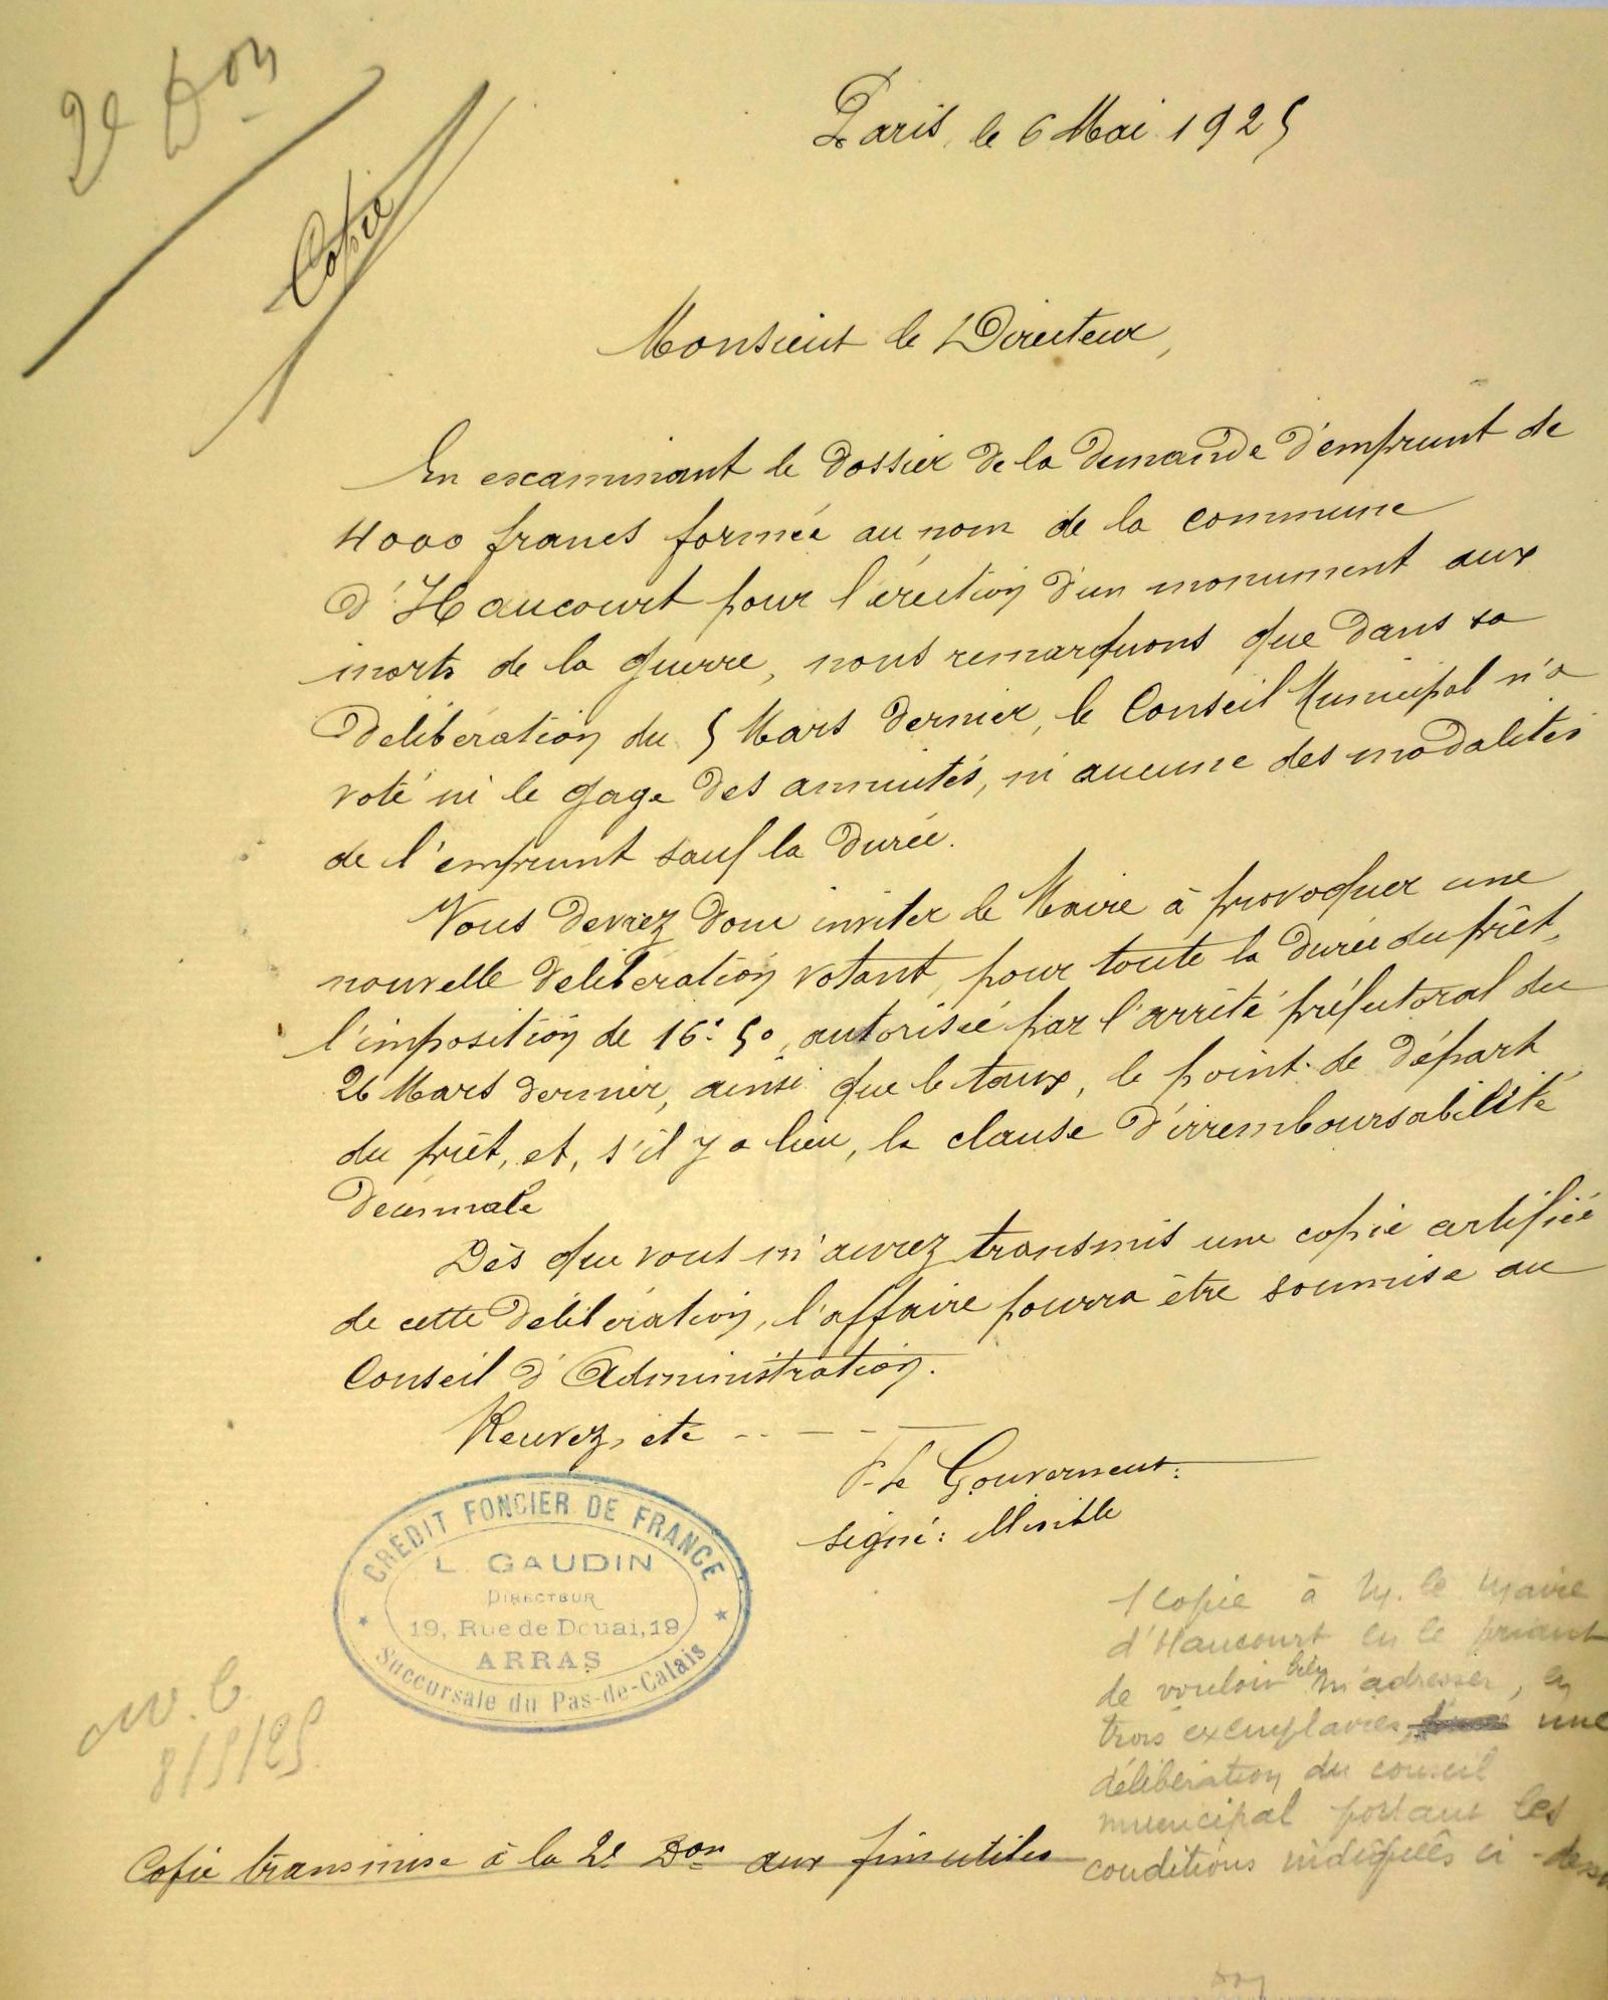 2e Don
Copie
Paris, le 6 Mai 1925
Monsieur le Directeur,
En examinant le dossier de la demande d'emprunt de
4000 francs formée au nom de la commune
d'Haucourt pour l'érection d'un monument aux
morts de la guerre, nous remarquons que dans sa
délibération du 5 Mars dernier, le Conseil Municipal n'a
voté ni le gage des annuités, ni aucune des modalités
de l'emprunt sauf la durée.
Vous devrez donc inviter le Maire à provoquer une
nouvelle délibération votant, pour toute la durée du prêt,
l'imposition de 16c 50, autorisée par l'arrêté préfectoral du
26 Mars dernier, ainsi que le taux, le point de départ
du prêt, et, s'il y a lieu, la clause d'irremboursabilité
décennale
Dès que vous m'aurez transmis une copie certifiée
de cette délibération, l'affaire pourra être soumise au
Conseil d'Administration.
Recevez, etc - - - -
P. le Gouverneur:
signé:
CREDIT FONCIER DE FRANCE
L. GAUDIN
DIRECTEUR
19, Rue de Douai, 19
ARRAS
Succursale du Pas-de-Calais
1 copie à M. le Maire
d'Haucourt en le priant
de vouloir bien m'adresser, en
trois exemplaires, une
délibération du conseil
municipal portant les
conditions indiquées ci-dessus
8/5/25
Copie transmise à la 2e Don aux fins utiles